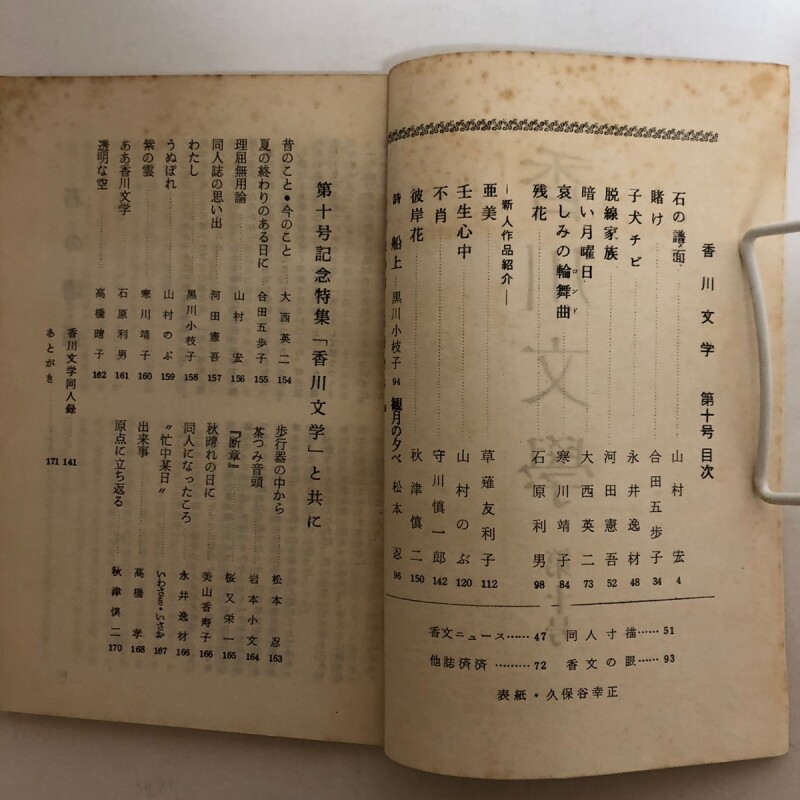 香川文学 第十号 目次
石の譜面 山村宏 4
賭け 合田五歩子 34
子犬チビ 永井逸材 48
脱線家族 河田憲吾 52
暗い月曜日 大西英二 73
哀しみの輪舞曲 寒川靖子 84
ロンド
残花 石原利男 98
―新人作品紹介―
亜美 草薙友利子 112
壬生心中 山村のぶ 120
不肖 守川慎一郎 142
彼岸花 秋津慎二 150
詩 船上 黒川小枝子 94 観月の夕べ 松本忍 96
香文ニュース……47 同人寸描……51
他誌済済………72 香文の眼……93
表紙・久保谷幸正
第十号記念特集「香川文学」と共に
昔のこと・今のこと 大西英二 154
夏の終わりのある日に 合田五歩子 155
理屈無用論 山村宏 156
同人誌の思い出 河田憲吾 157
わたし 黒川小枝子 158
うぬぼれ 山村のぶ 159
紫の雲 寒川靖子 160
ああ香川文学 石原利男 161
透明な空 高橋晴子 162
歩行器の中から 松本忍 163
茶つみ音頭 岩本小文 164
『断章』 桜又栄一 165
秋晴れの日に 美山香寿子 166
同人になったころ 永井逸材 166
"忙中某日" いわさき・いさお 167
出来事 高橋孝 168
原点に立ち返る 秋津慎二 170
香川文学同人録 141
あとがき 171